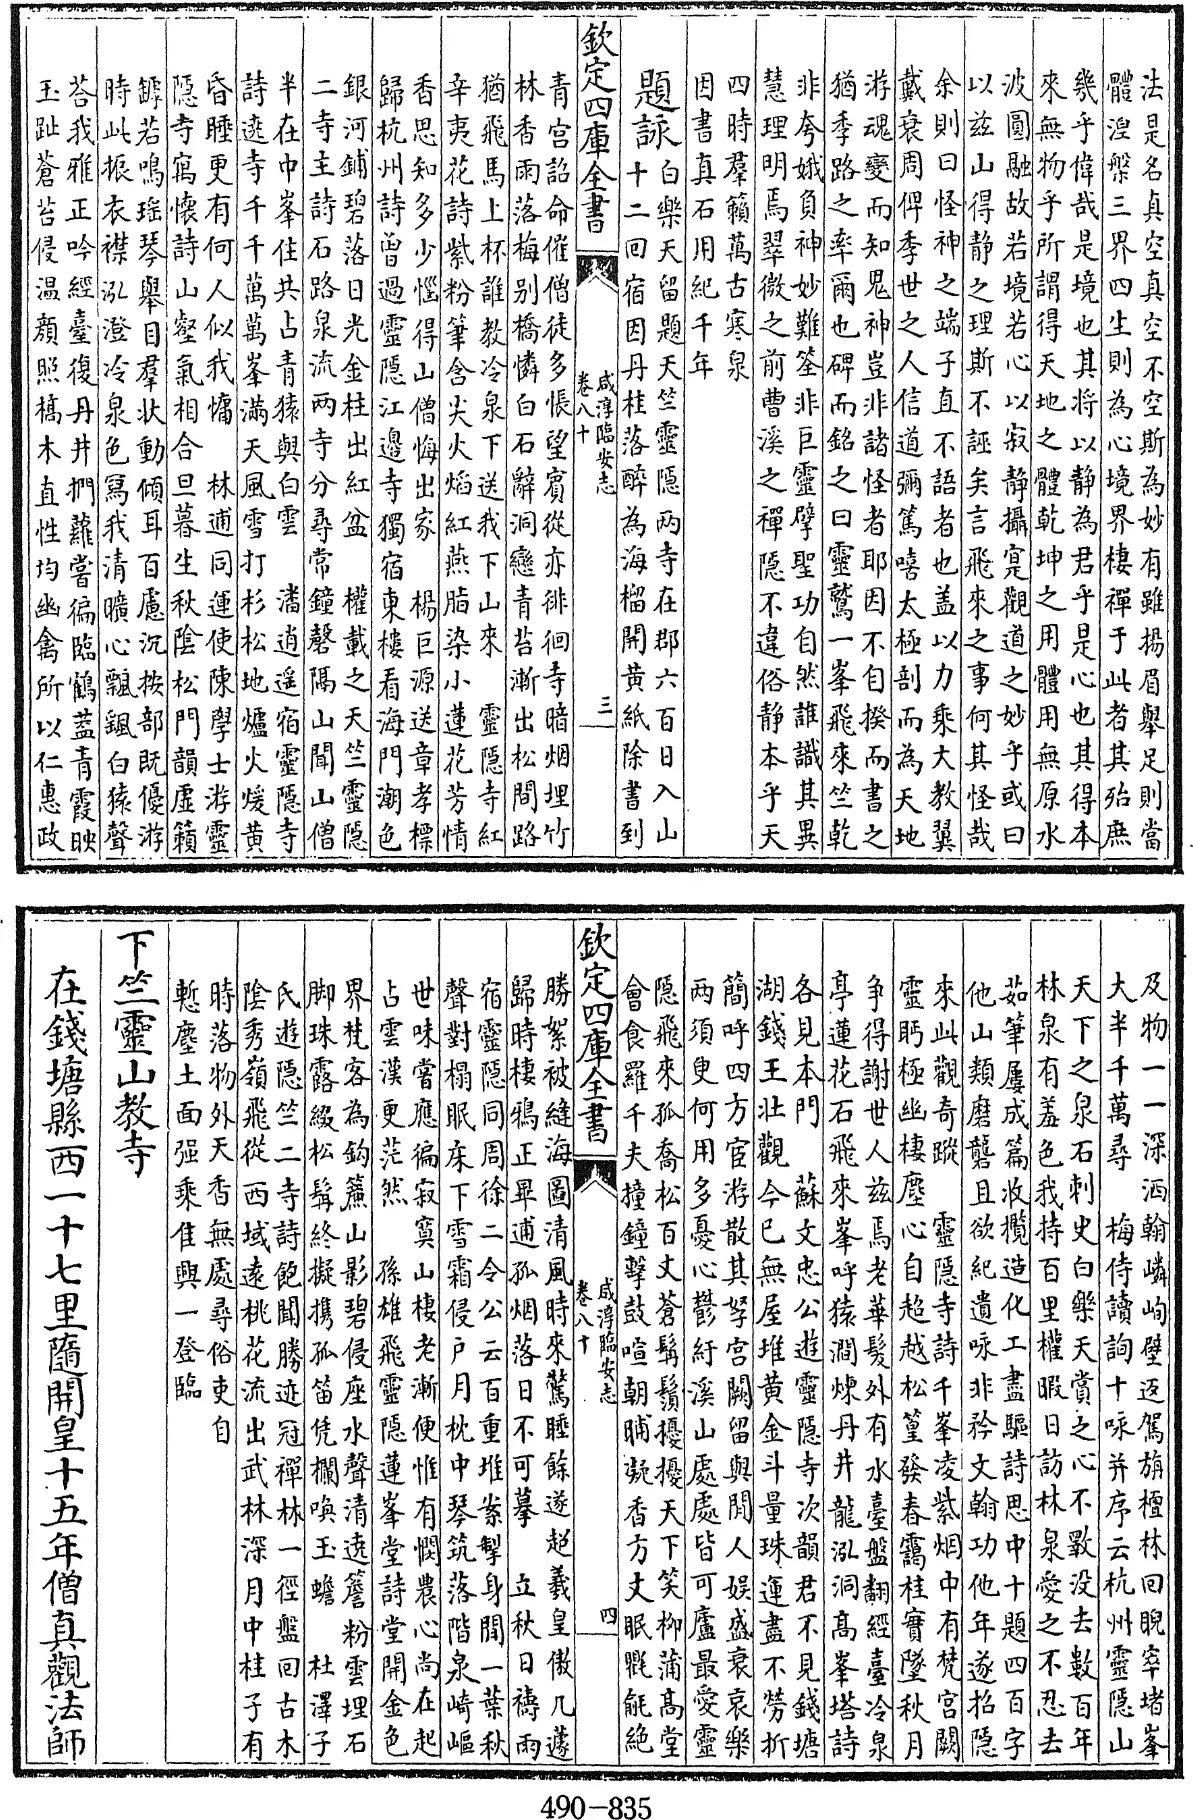 法是名真空真空不空斯為妙有雖揚眉舉足則當
體湼槃三界四生則為心境界棲禪于此者其殆庶
幾乎偉哉是境也其將以静為君乎是心也其得本
來無物乎所謂得天地之體乾坤之用體用無原水
波圓融故若境若心以寂静攝㝠觀道之妙乎或曰
以兹山得静之理斯不誣矣言飛來之事何其怪哉
余則曰怪神之端子直不語者也盖以力乘大教翼
戴衰周俾季世之人信道彌篤嘻太極剖而為天地
游魂變而知鬼神豈非諸怪者耶因不自揆而書之
猶季路之率爾也碑而銘之曰靈鷲一峯飛來竺乾
非夸娥負神妙難筌非巨靈擘聖功自然誰識其異
慧理明焉翠微之前曹溪之禪隠不違俗静本乎天
四時羣籟萬古寒泉
因書真石用紀千年
題詠白樂天留題天竺靈隠兩寺在郡六百日入山
十二回宿因丹桂落醉為海榴開黄紙除書到
欽定四庫全書 咸淳臨安志 卷八十 三
青宫詔命催僧徒多悵望賓從亦徘徊寺暗烟埋竹
林香雨落梅别橋憐白石辭洞戀青苔漸出松間路
猶飛馬上杯誰教冷泉下送我下山來 靈隠寺紅
辛夷花詩紫粉筆含尖火焰紅燕脂染小蓮花芳情
香思知多少惱得山僧悔出家 楊巨源送章孝標
歸杭州詩曾過靈隠江邊寺獨宿東樓看海門潮色
銀河鋪碧落日光金柱出紅盆 權載之天竺靈隠
二寺主詩石路泉流兩寺分尋常鐘磬隔山聞山僧
半在中峯住共占青猿與白雲 潘逍遥宿靈隠寺
詩遶寺千千萬萬峯滿天風雪打杉松地爐火煖黄
昏睡更有何人似我慵 林逋同運使陳學士游靈
隠寺寓懷詩山壑氣相合旦暮生秋陰松門韻虚籟
罅若鳴瑶琴舉目羣状動傾耳百慮沉按部既優游
時此振衣襟泓澄冷泉色寫我清曠心飄飄白猿聲
荅我雅正吟經臺復丹井捫蘿嘗徧臨鶴蓋青霞映
玉趾蒼苔侵温顔照槁木直性均幽禽所以仁惠政
及物一一深洒翰嶙峋壁返駕旃檀林回睨窣堵峯
大半千萬尋 梅侍讀詢十咏并序云杭州靈隠山
天下之泉石刺史白樂天賞之心不斁没去數百年
林泉有羞色我持百里權暇日訪林泉愛之不忍去
茹筆屢成篇收攬造化工盡驅詩思中十題四百字
他山類磨礱且欲紀遺咏非矜文翰功他年遂招隠
來此觀奇蹤 靈隠寺詩千峯凌紫烟中有梵宫闕
靈眄極幽棲塵心自超越松篁發春靄桂實墜秋月
争得謝世人兹焉老華髮外有水臺盤翻經臺冷泉
亭蓮花石飛來峯呼猿澗煉丹井龍泓洞髙峯塔詩
各見本門 蘇文忠公遊靈隠寺次韻君不見錢塘
湖錢王壮觀今已無屋堆黄金斗量珠運盡不勞折
簡呼四方宦游散其孥宫闕留與閒人娱盛衰哀樂
兩須臾何用多憂心鬱紆溪山處處皆可廬最愛靈
隠飛來孤喬松百丈蒼髯鬚擾擾天下笑柳蒲髙堂
會食羅千夫撞鐘擊鼓喧朝晡凝香方丈眠氍毹絶
欽定四庫全書 咸淳臨安志 卷八十 四
勝絮被縫海圖清風時來驚睡餘遂超羲皇傲几蘧
歸時棲鴉正畢逋孤烟落日不可摹 立秋日禱雨
宿靈隠同周徐二令公云百重堆案掣身閒一葉秋
聲對榻眠牀下雪霜侵户月枕中琴筑落階泉崎嶇
世味嘗應徧寂寞山棲老漸便惟有憫農心尚在起
占雲漢更茫然 孫雄飛靈隠蓮峯堂詩堂開金色
界梵客為鈎簾山影碧侵座水聲清遶簷粉雲埋石
脚珠露綴松髯終擬携孤笛凭欄喚玉蟾 杜澤子
氏遊隠竺二寺詩飽聞勝迹冠禪林一徑盤回古木
陰秀嶺飛從西域遠桃花流出武林深月中桂子有
時落物外天香無處尋俗吏自
慙塵土面强乘隹興一登臨
下竺靈山教寺
在錢塘縣西一十七里隋開皇十五年僧真觀法師
490-835